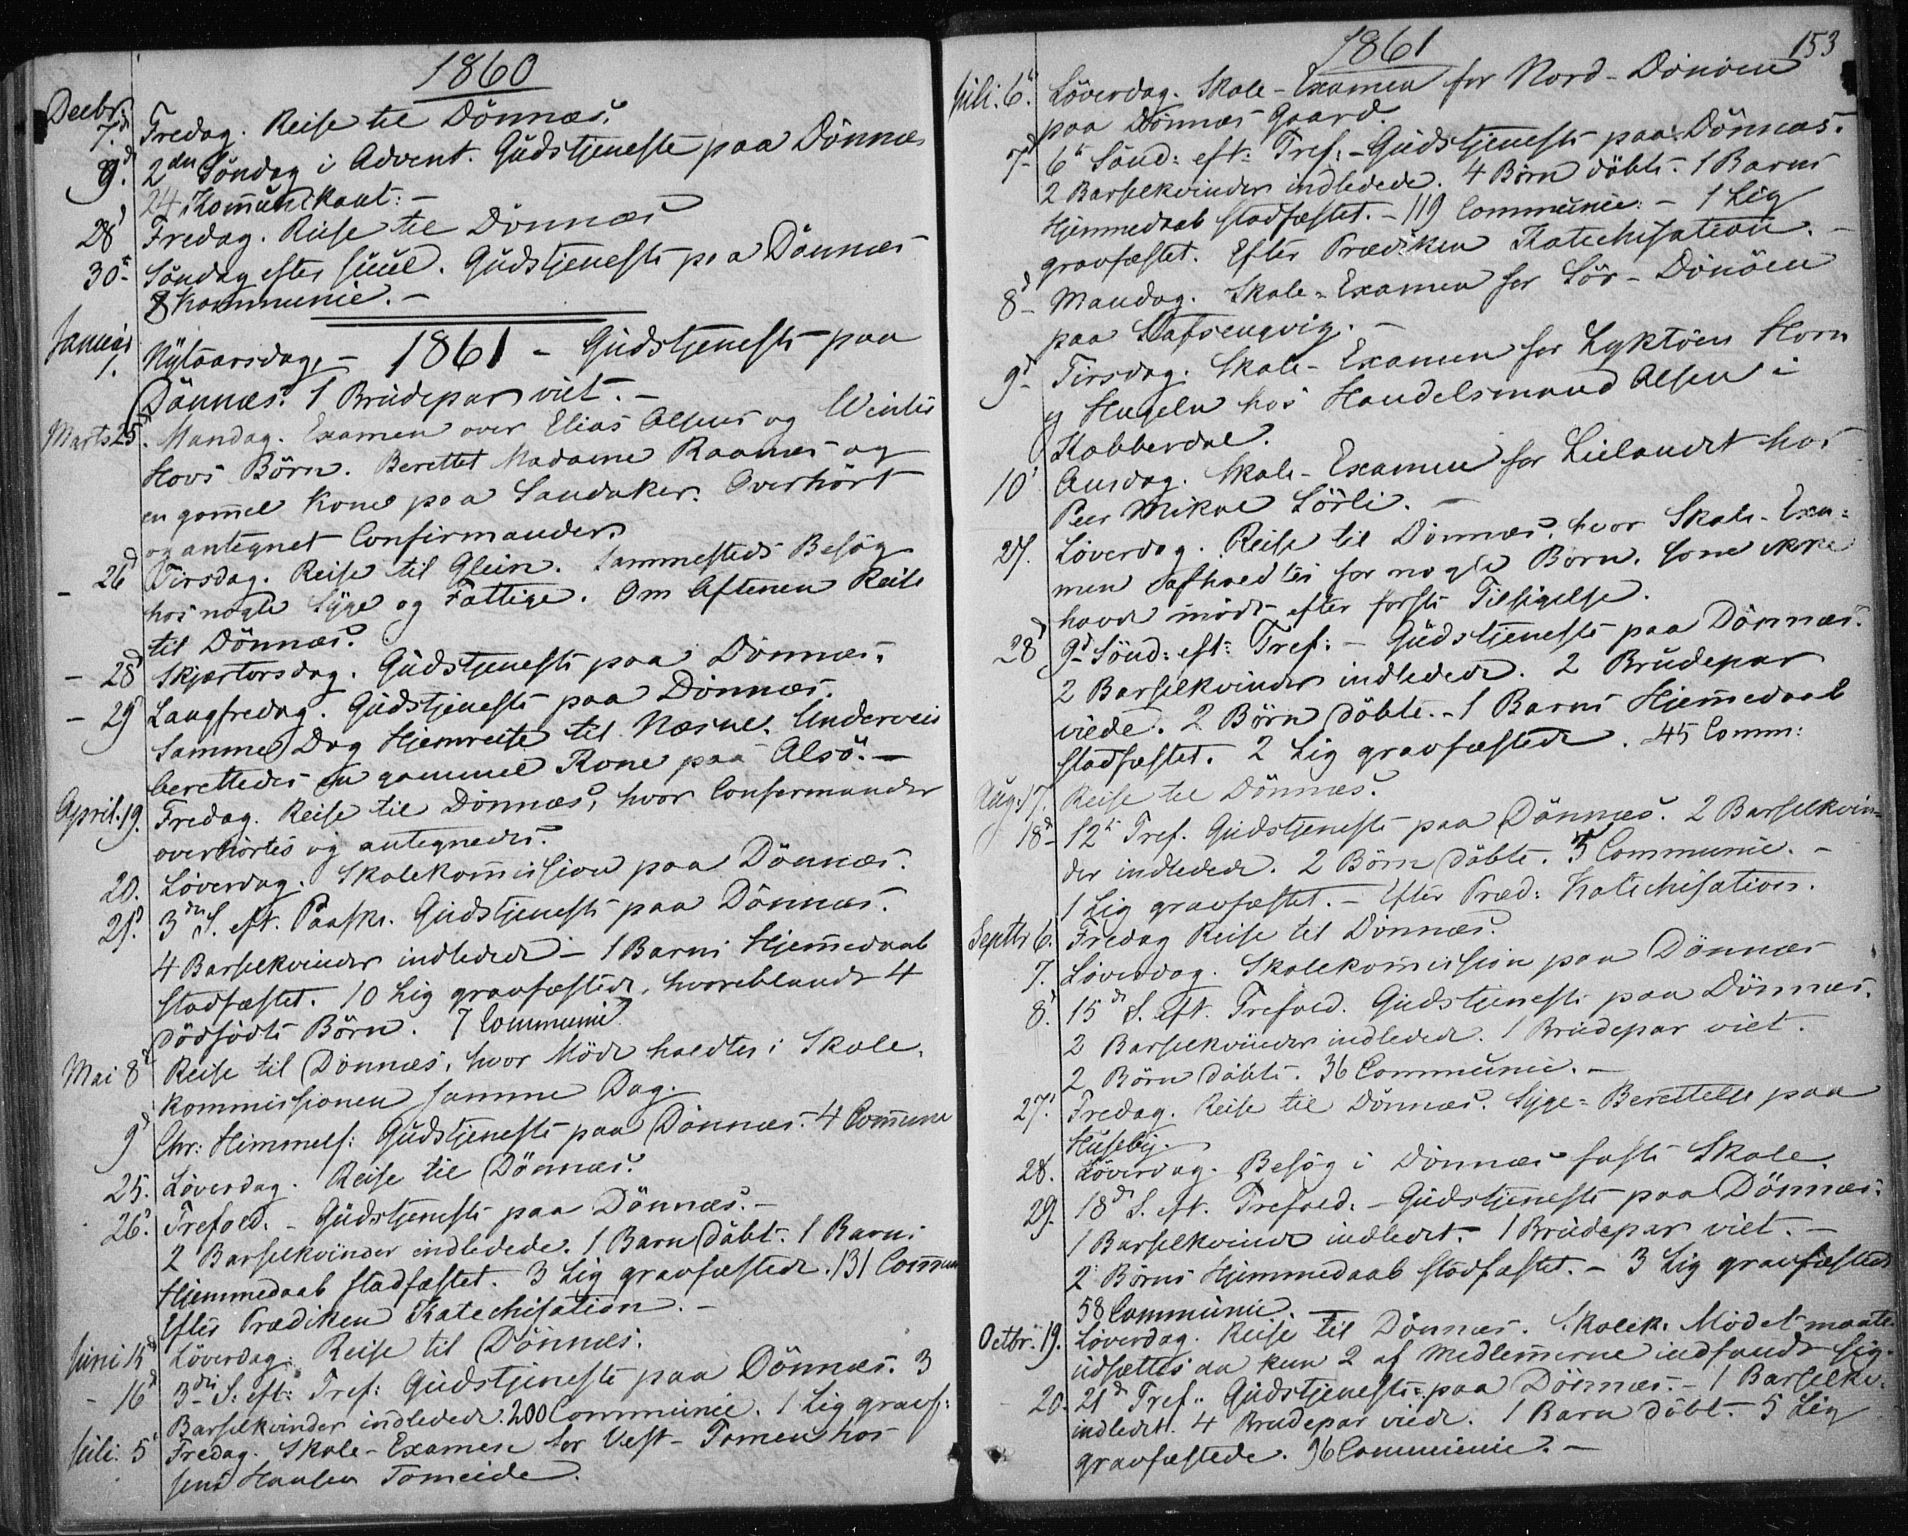 1860
Decbr.
7.d Fredag. Reise til Dönnæs.
9.d 2den Söndag i Advent. Gudstjeneste paa Dönnæs
24 Kom̄unikant: -
28d Fredag. Reise til Dönnæs
30te Söndag efter Juul. Gudstjeneste paa Dönnæs
8 Kommunie. -
Januar 1. Nytaarsdag, - 1861 - Gudstjeneste paa
Dönnæs. 1 Brudepar viet. -
Marts 25. Mandag. Examen over Elias Olsens og
Hovs Börn. Berettet Madame Raanes og
en gam̄el Kone paa Sandaker. Overhört
og antegnet Confirmander.
- 26d Tirsdag. Reise til Glein. Sammesteds Besög
hos nogle Syge og Fattige. Om Aftenen Reise
til Dönnæs.
- 28d Skjærtorsdag. Gudstjeneste paa Dönnæs.
- 29 Langfredag. Gudstjeneste paa Dönnæs.
Samme Dag Hjemreise til Næsne. Underveis
berettedes en gammel Kone paa Alsö. -
April. 19. Fredag. Reise til Dönnæs, hvor Confirmander
overhörtes og antegnedes.
20. Löverdag. Skolekom̄ission paa Dönnæs.
21d 3die S. eft. Paaske. Gudstjeneste paa Dönnæs.
4 Barselkvinder indledede - 1 Barns Hjem̄edaab
stadfæstet. 10 Lig gravfæstede, hvoriblandt 4
dödfödte Börn. 7 Communie
Mai 8d Reise til Dönnæs, hvor Möde holdtes i Skole-
kommissionen samme Dag.
9d Chr: Himmelf: Gudstjeneste paa Dönnæs. 4 Com̄unie
25. Löverdag. Reise til Dönnæs.
26d. Trefold. - Gudstjeneste paa Dönnæs. -
2 Barselkvinder indledede. 1 Barn döbt. 1 Barns
Hjemmedaab stadfæstet. 3 Lig gravfæstede. 131 Com̄un
Efter Prædiken Katechisation. -
Juni 15d Löverdag. Reise til Dönnæs.
- 16d 3die S. eft: Tref: Gudstjeneste paa Dönnæs. 3
Barselkvinder indledede. 200 Communie. 1 Lig gravf:
Juli. 5d Fredag. Skole-Examen for Vest-Tomen hos
Jens Hansen Tomeide.
1861
153
Juli. 6d Löverdag. Skole-Examen for Nord-Dönöen
paa Dönnæs Gaard.
7d 6te Sönd: eft: Tref: - Gudstjeneste paa Dönnæs.
2 Barselkvinder indledede. 4 Börn döbte. 1 Barns
Hjemmedaab stadfæstet. - 119 Communie: - 1 Lig
gravfæstet. Efter Prædiken Katechisation. -
8d Mandag. Skole-Examen for Sör-Dönöen
paa
9d Tirsdag. Skole-Examen for Lyktöen Horn
og Hugeln hos Handelsmand Olsen i
Kobberdal.
10d Onsdag. Skole-Examen for Leilandet hos
Peer Mikal Sörli. -
27. Löverdag. Reise til Dönnæs, hvor Skole-Exa-
men afholdtes for nogle Börn, som ikke
havde mödt efter förste Tilsigelse.
28d 9de Sönd: eft: Tref: - Gudstjeneste paa Dönnæs.
2 Barselkvinder indledede. 2 Brudepar
viede. 2 Börn döbte. - 1 Barns Hjem̄edaab
stadfæstet. 2 Lig gravfæstede. 45 Comm:
Aug. 17. Reise til Dönnæs.
18d 12te Tref. Gudstjeneste paa Dönnæs. 2 Barselkvin-
der indledede. 2 Börn döbte. Communie. -
1 Lig gravfæstet. - Efter Præd: Katechisation.
Septbr 6. Fredag Reise til Dönnæs.
7. Löverdag. Skolekom̄ission paa Dönnæs
8d. 15de S. eft. Trefold. Gudstjeneste paa Dönnæs.
2 Barselkvinder indledede. 1 Brudepar viet.
2 Börn döbte. 36 Communie. -
27d. Fredag. Reise til Dönnæs. Syge-Berettelse paa
Huseby. -
28. Löverdag. Besög i Dönnæs faste Skole.
29. 18de S. eft. Trefold. - Gudstjeneste paa Dönnæs.
1 Barselkvinde indledet. - 1 Brudepar viet. -
2 Börns Hjemmedaab stadfæstet. - 3 Lig gravfæstede
58 Communie. -
Octbr. 19. Löverdag. Reise til Dönnæs. Skolek. Mödet maatte
udsættes da kun 2 af Medlem̄erne indfandt sig.
20. 21de Tref.. Gudstjeneste paa Dönnæs. - 1 Barselkv.
indledet. 4 Brudepar viede. 1 Barn döbt. - 5 Lig
gravfæstede. 96 Communie. -